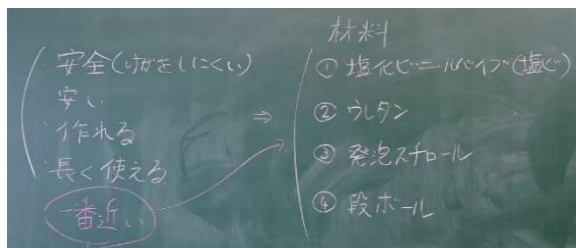 安全(けがをしにくい)
安い
作れる
長く使える
一番近い
⇒
材料
① 塩化ビニールパイプ(塩ビ)
② ウレタン
③ 発泡スチロール
④ 段ボール